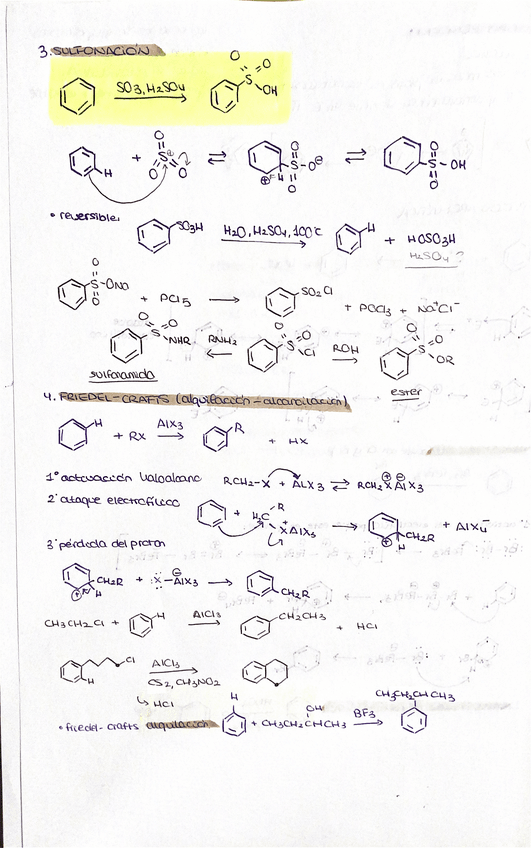 3. SULFONACIÓN
SO3, H2SO4
O O S OH
H + O S O O ⇌ ⊕ H O S O⊖ O ⇌ O S OH O
• reversible,
SO3H H2O, H2SO4, 100°C H + HOSO3H
H2SO4?
O S ONa O + PCl5 → SO2Cl + POCl3 + Na+Cl-
O O S NHR RNH2 ← O O S Cl ROH → O O S OR
sulfonamida
ester
4. FRIEDEL-CRAFTS (alquilación-alcanoilación)
H + RX AlX3 → R + HX
1º activación haloalcano RCH2-X + AlX3 ⇌ RCH2XAlX3
2º ataque electrofílico + H2C R X+ AlX3 → CH2R H + AlX4-
3º pérdida del proton
CH2R H + :X-AlX3 → CH2R
CH3CH2Cl + H AlCl3 → CH2CH3 + HCl
Cl H AlCl3
CS2, CH3NO2
↳ HCl
• friedel-crafts alquilación H + CH3CH2CHCH3 OH BF3 → CH3CH2CHCH3